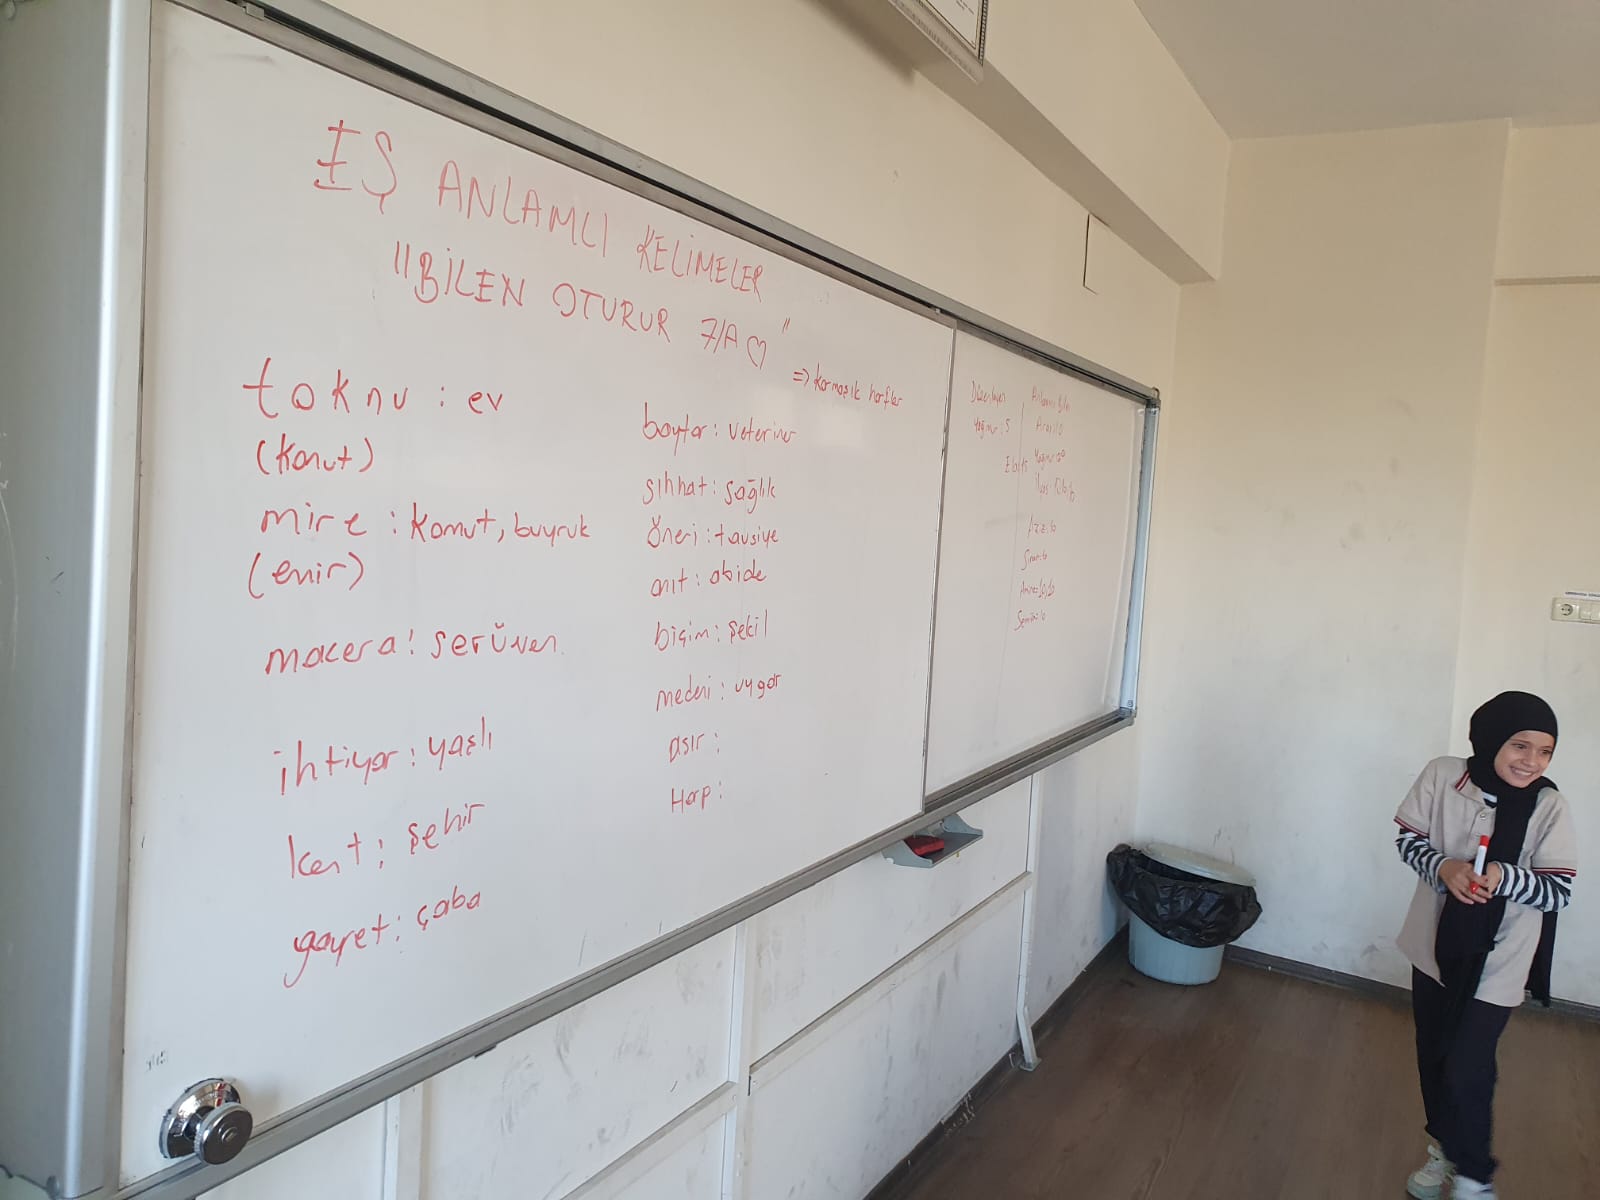 EŞ ANLAMLI KELİMELER
"BİLEN OTURUR 7/A ♡"
=> karmaşık harfler
toknu : ev
(konut)
mire : komut, buyruk
(emir)
macera : serüven
ihtiyar : yaşlı
kent : şehir
gayret : çaba
baytar : veteriner
sıhhat : sağlık
öneri : tavsiye
anıt : abide
biçim : şekil
medeni : uygar
asır :
Harp :
Düzenleyen
Yağmur : 5
Anlamını Bilen